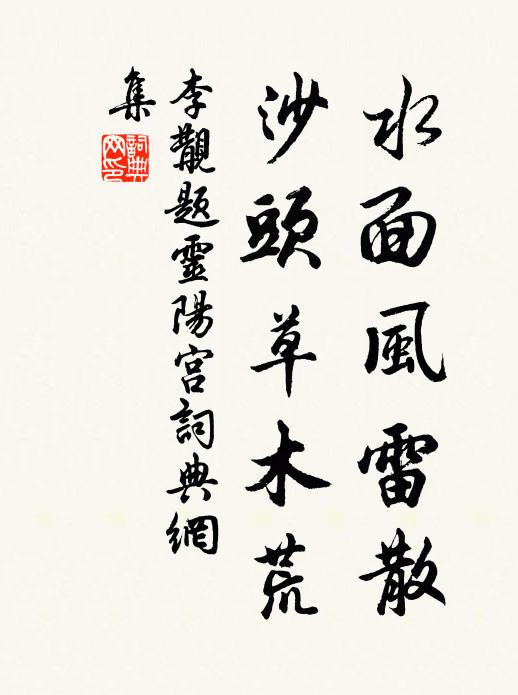 水面風雷散
沙頭草木荒
李觏題靈陽宮詞典網
集
詞典網印